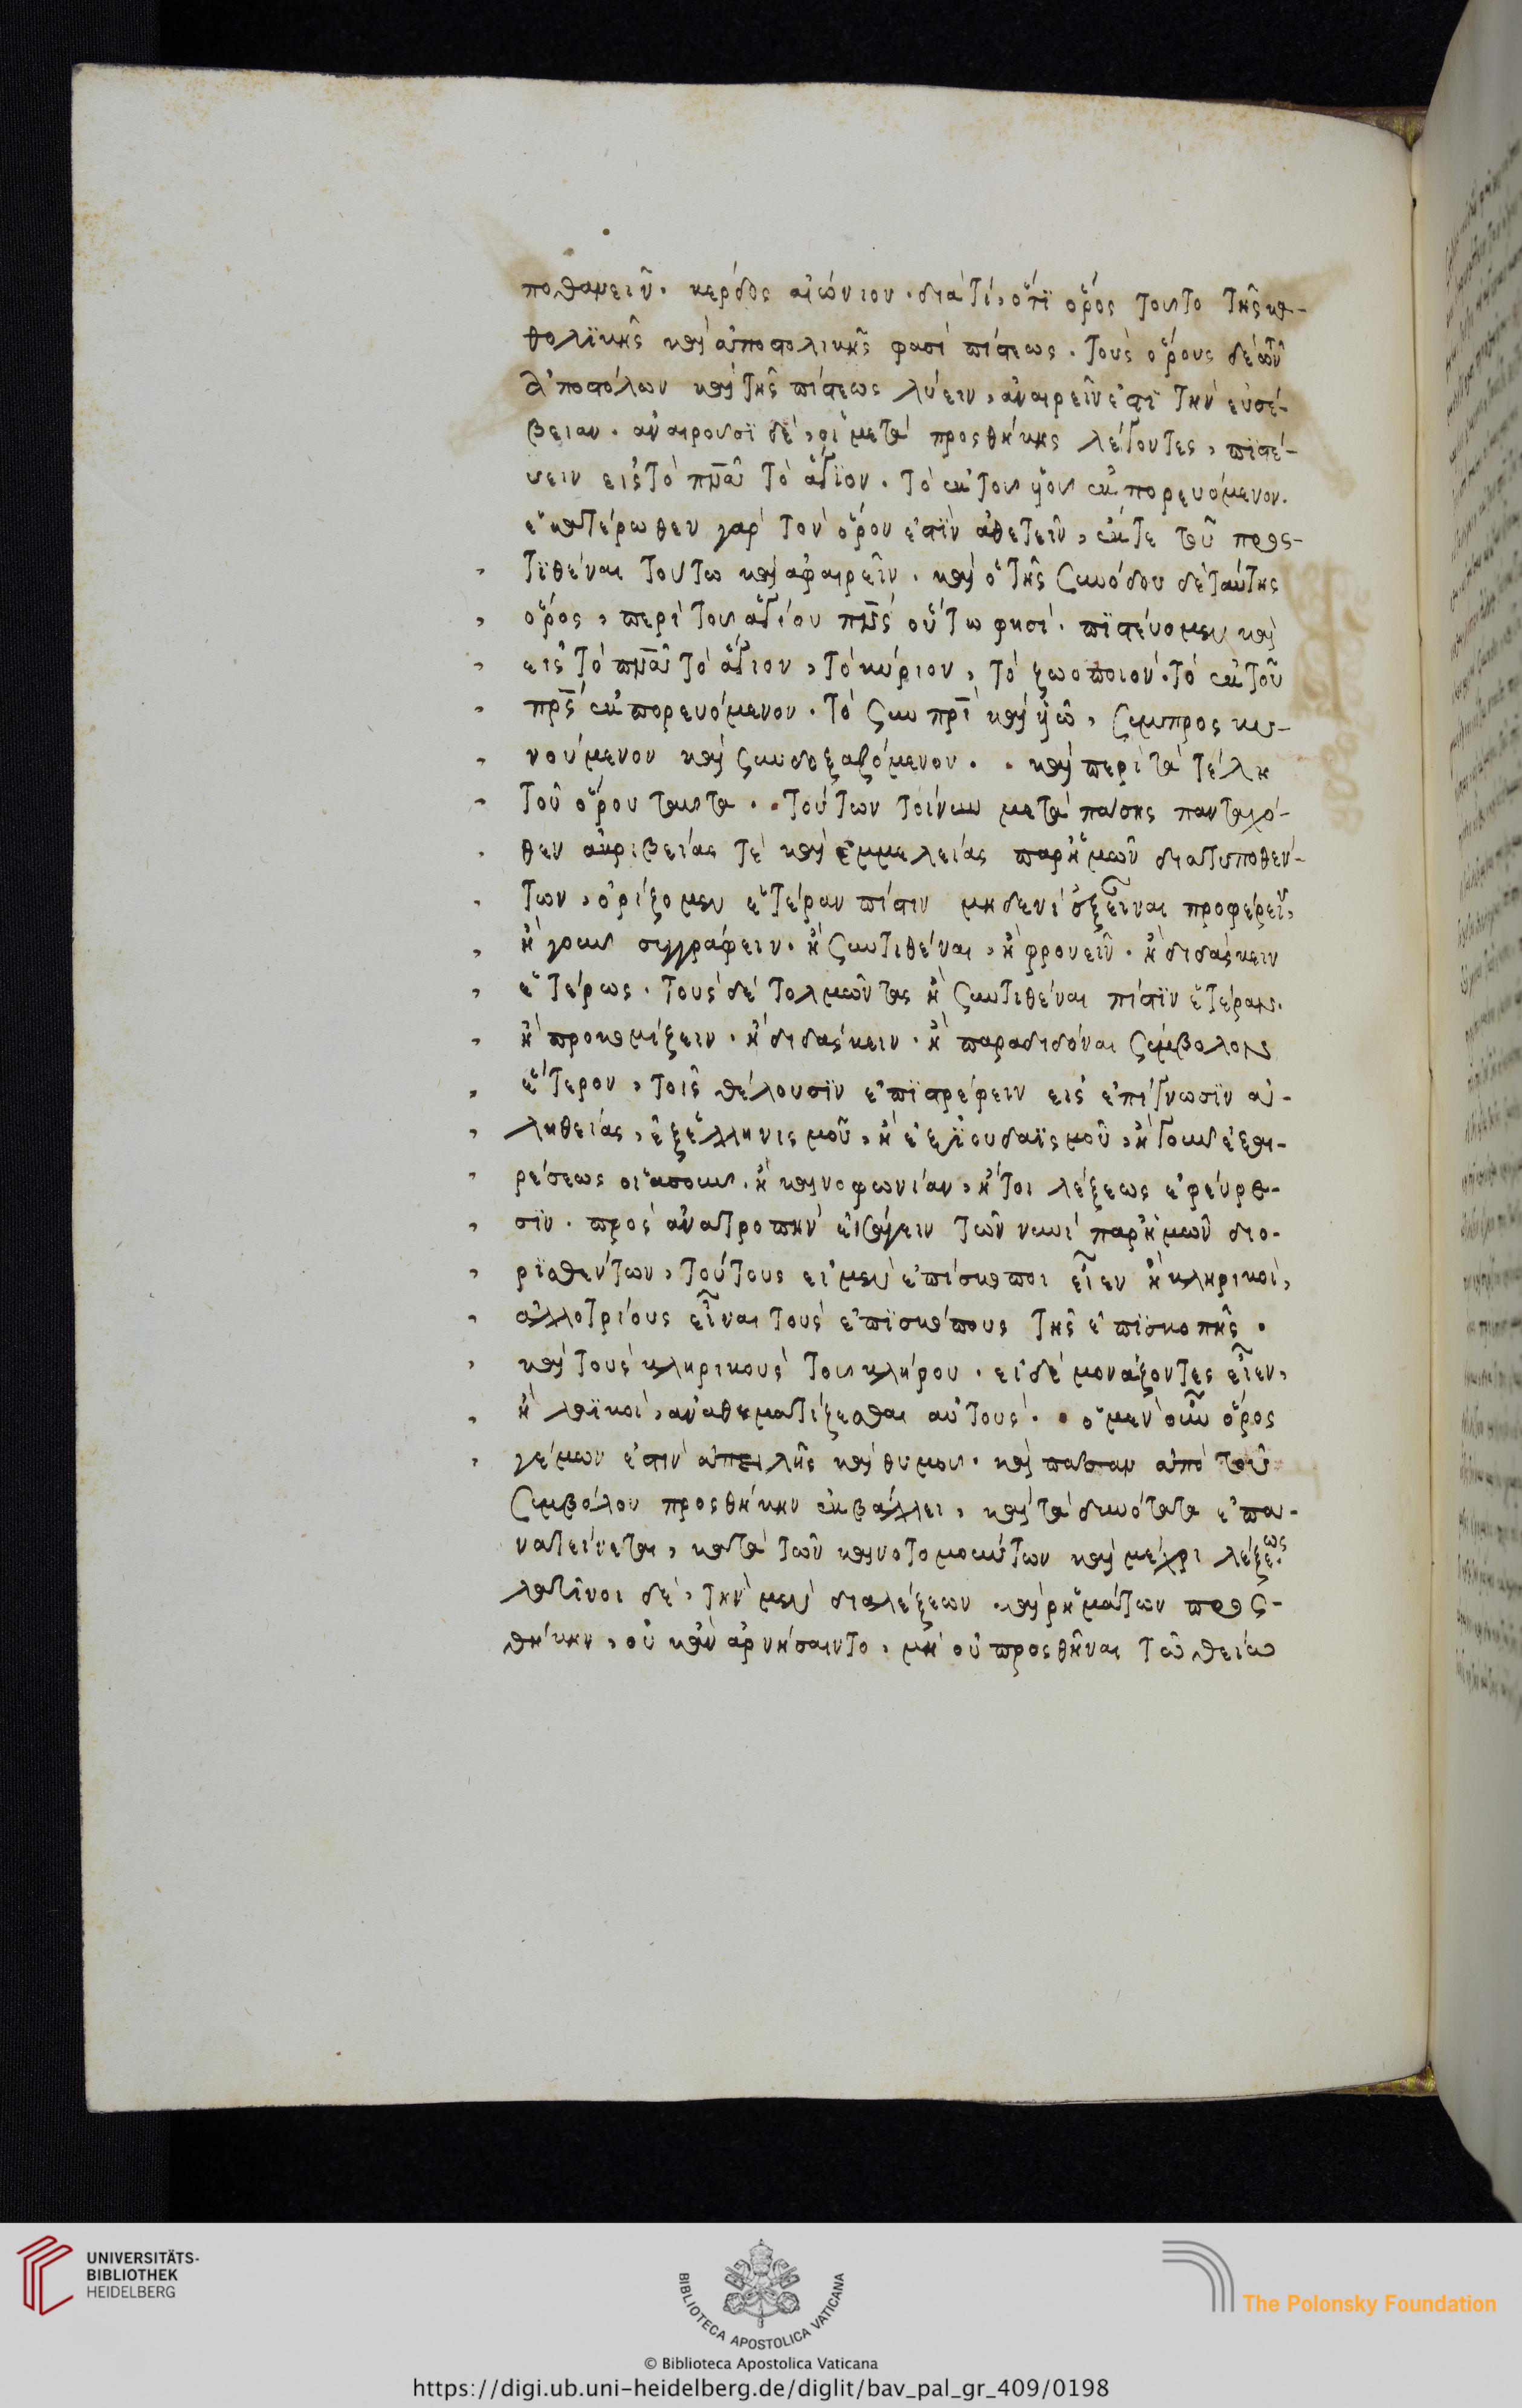 ποθανεῖν. κέρδος αἰώνιον. διατί, ὅτϊ ὅρος τοῦτο τῆς κα-
θολϊκῆς καὶ ἀποστολικῆς φασὶ πίστεως. τοὺς ὅρους δὲ τῶν
ἀποστόλων καὶ τῆς πίστεως λύειν, ἀναιρεῖν ἐστϊ τὴν εὐσέ-
βειαν. ἀναιροῦσϊ δὲ, οἱ μετὰ προςθήκης λέγοντες, πϊστέ-
υειν εἰς τὸ πνᾶ τὸ ἅγϊον. τὸ ἐκ τοῦ υἱοῦ ἐκπορευόμενον.
ἑκατέρωθεν γὰρ τὸν ὅρον ἐστϊν ἀθετεῖν, ἔκ τε τοῦ προς-
τϊθέναι τούτω καὶ ἀφαιρεῖν. καὶ ὁ τῆς συνόδου δὲ ταύτης
ὅρος, περὶ τοῦ ἁγίου πνς οὕτω φησί. πϊστέυομεν καὶ
εἰς τὸ πνᾶ τὸ ἅγιον, τὸ κύριον, τὸ ζωοποιόν. τὸ ἐκ τοῦ
πρς ἐκπορευόμενον. τὸ συν πρι καὶ υἱῶ, συμπροςκυ-
νούμενον καὶ συνδοξαζόμενον. . καὶ περὶ τὰ τέλη
τοῦ ὅρου ταῦτα. . τούτων τοίνυν μετὰ πάσης πανταχό-
θεν ἀκριβείας τὲ καὶ ἐμμελείας παρ ἡμῶν διατυποθέν-
των, ὁρίζομεν ἑτέραν πίστιν μηδενὶ ἐξεῖναι προφέρειν,
ἢ γοῦν συγγράφειν. ἢ συντιθέναι, ἢ φρονεῖν. ἢ διδάςκειν
ἑτέρως. τοὺς δὲ τολμῶντας ἢ συντιθέναι πίστϊν ἑτέραν.
ἢ προκομίζειν. ἢ διδάςκειν. ἢ παραδιδόναι σύμβολον
ἕτερον, τοῖς θέλουσϊν ἐπϊστρέφειν εἰς ἐπίγνωσϊν ἀ-
ληθείας, ἐξ ἑλληνιςμοῦ, ἢ ἐξ ϊουδαϊςμοῦ, ἢ γοῦν ἐξ αἱ-
ρέσεως οἱασοῦν. ἢ καινοφωνίαν, ἤτοι λέξεως ἐφέυρε-
σϊν. πρὸς ἀνατροπὴν εἰσάγειν τῶν νυνὶ παρ ἡμῶν διο-
ρϊσθέντων, τούτους εἰ μὲν ἐπίσκοποι εἶεν ἢ κληρικοὶ,
ἀλλοτρίους εἶναι τοὺς ἐπϊσκόπους τῆς ἐπϊσκοπῆς.
καὶ τοὺς κληρικοὺς τοῦ κλήρου. εἰ δὲ μονάζοντες εἶεν,
ἢ λαϊκοὶ, ἀναθεματίζεσθαι αὐτούς. . ὁ μὲν οὖν ὅρος
γέμων ἐστὶν ἀπειλῆς καὶ θυμοῦ. καὶ πᾶσαν ἀπὸ τοῦ
συμβόλου προςθήκην ἐκβάλλει, καὶ τὰ δεινότατα ἐπα-
νατείνεται, κατὰ τῶν καινοτομούντων καὶ μέχρι λέξεως.
λατῖνοι δὲ, τὴν μὲν διαλέξεων. καὶ ῥημάτων προς-
θήκην, οὐ κἂν ἀρνήσαιντο, μὴ οὐ προςθῆναι τῶ θείω
UNIVERSITÄTS-
BIBLIOTHEK
HEIDELBERG
BIBLIOTECA APOSTOLICA VATICANA
The Polonsky Foundation
© Biblioteca Apostolica Vaticana
https://digi.ub.uni-heidelberg.de/diglit/bav_pal_gr_409/0198